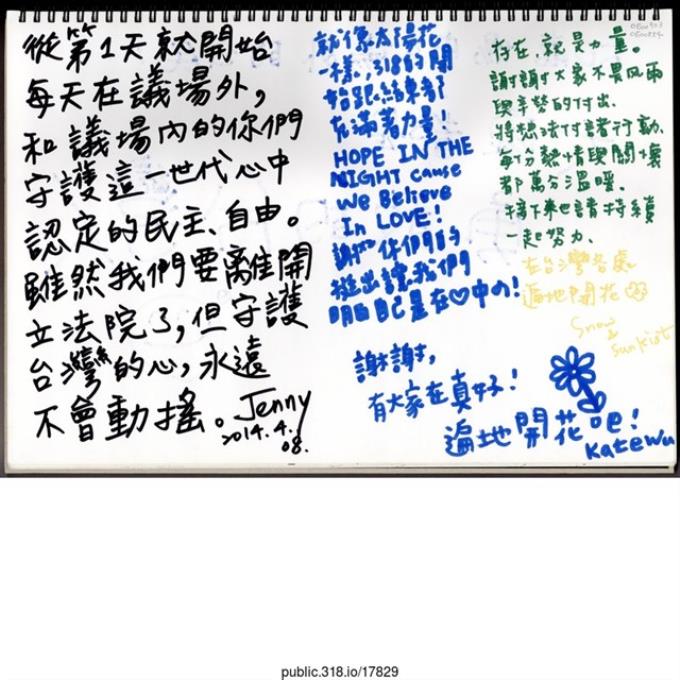 從第1天就開始
每天在議場外，
和議場內的你們
守護這一世代心中
認定的民主、自由。
雖然我們要離開
立法院了，但守護
台灣的心，永遠
不會動搖。Jenny
2014.4.
08.
就像太陽花
一樣，318的開
始跟結束都
充滿著力量！
HOPE IN THE
NIGHT cause
We Believe
In LOVE!
謝謝你們的
挺出讓我們
明白自己是在♡中の！
謝謝，
有大家在真好！
遍地開花吧！
KateWu
存在，就是力量。
謝謝大家不畏風雨
與辛勞的付出、
將想法付諸行動、
每份熱情與關懷
都萬分溫暖、
接下來也請持續
一起努力、
在台灣各處
遍地開花
Snow
&
Sunkist
public.318.io/17829